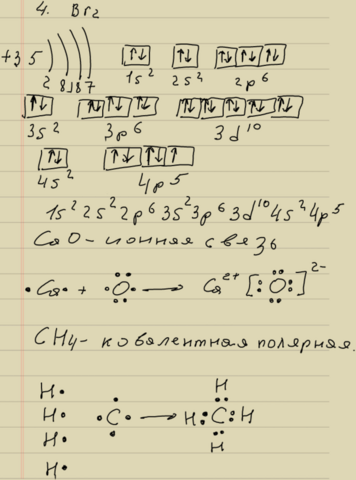 4. Br2
+35 ) ) ) )
2 8 18 7
1s² 2s² 2p⁶
3s² 3p⁶ 3d¹⁰
4s² 4p⁵
1s² 2s² 2p⁶ 3s² 3p⁶ 3d¹⁰ 4s² 4p⁵
CaO - ионная связь
•Ca• + •O• → Ca²⁺ [:O:]²⁻
CH4 - ковалентная полярная.
H• H
H• •C• → H:C:H
H• H
H•